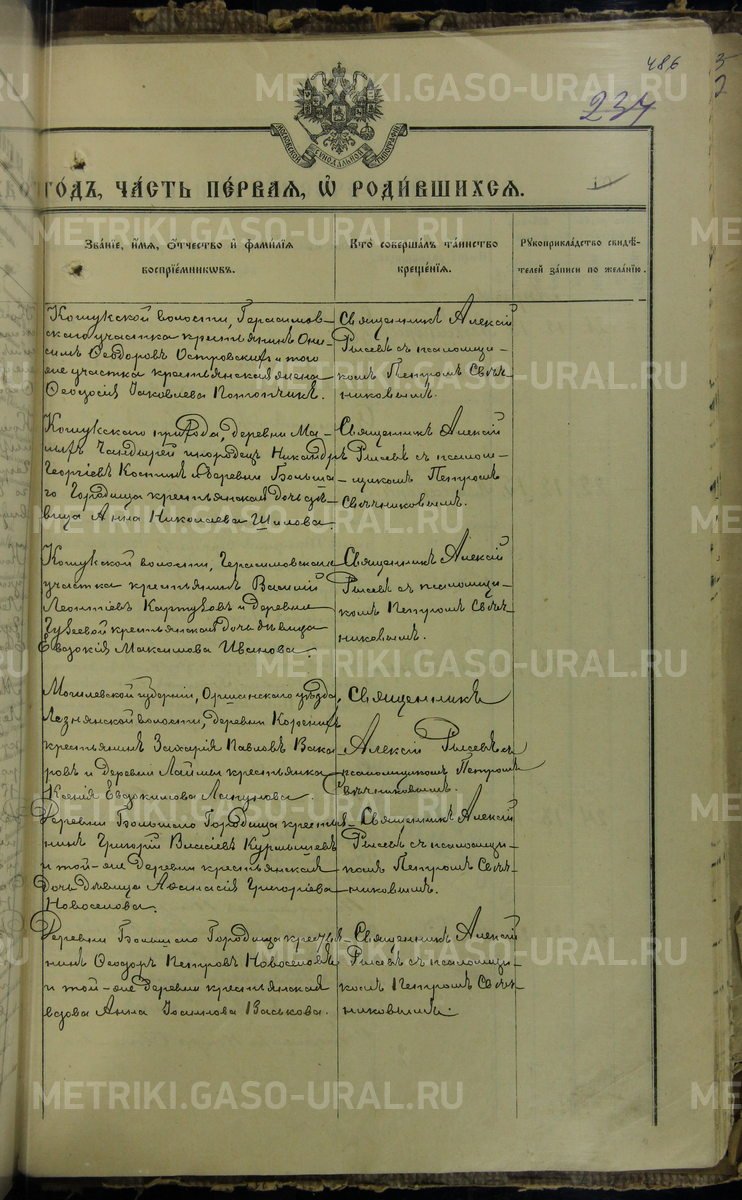 486
237
МОСКОВСКОЙ СѴНОДАЛЬНОЙ ТИПОГРАФІИ
ГО́ДЪ, ЧА́СТЬ ПЕ́РВАЯ, Ѡ҆ РОДИ́ВШИХСЯ.
Зва́ніе, и҆́мя, ѻ҆́тчество и҆ фами́лія
воспріе́мниковъ.
Кто̀ соверша́лъ та́инство
креще́нія.
Рꙋкоприкла́дство свидѣ́-
телей за́писи по жела́нію.
Кошукской волости, Герасимов-
скаго участка крестьянинъ Они-
симъ Ѳеодоровъ Островскій и того
же участка крестьянская жена
Ѳеодосія Іаковлева Потопчикъ.
Священникъ Алексій
Рысевъ съ псаломщи-
комъ Петромъ Свѣч-
никовымъ.
Кошукскаго прихода, деревни Ма-
лыхъ Чандырей инородецъ Никандръ
Георгіевъ Костинъ и деревни Больша-
го Городища крестьянская дочь дѣ-
вица Анна Николаева Шилова.
Священникъ Алексій
Рысевъ съ псалом-
щикомъ Петромъ
Свѣчниковымъ.
Кошукской волости, Герасимовскаго
участка крестьянинъ Василій
Леонтіевъ Картузовъ и деревни
Гузеевой крестьянская дочь дѣвица
Евдокія Максимова Иванова.
Священникъ Алексій
Рысевъ съ псаломщи-
комъ Петромъ Свѣч-
никовымъ.
Могилевской губерніи, Оршанскаго уѣзда,
Лезнянской волости, деревни
крестьянинъ Захарія Павловъ Зака-
ровъ и деревни Лаймы крестьянка
Ксенія Евдокимова Лапунова.
Священникъ
Алексій Рысевъ съ
псаломщикомъ Петромъ
Свѣчниковымъ.
Деревни Большаго Городища крестья-
нинъ Григорій Власіевъ Курмышевъ
и той-же деревни крестьянская
дочь дѣвица Аѳанасія Григоріева
Новоселова.
Священникъ Алексій
Рысевъ съ псаломщи-
комъ Петромъ Свѣч-
никовымъ.
Деревни Большаго Городища крестья-
нинъ Ѳеодоръ Петровъ Новоселовъ
и той-же деревни крестьянская
вдова Анна Васькова.
Священникъ Алексій
Рысевъ съ псаломщи-
комъ Петромъ Свѣч-
никовымъ.
METRIKI.GASO-URAL.RU